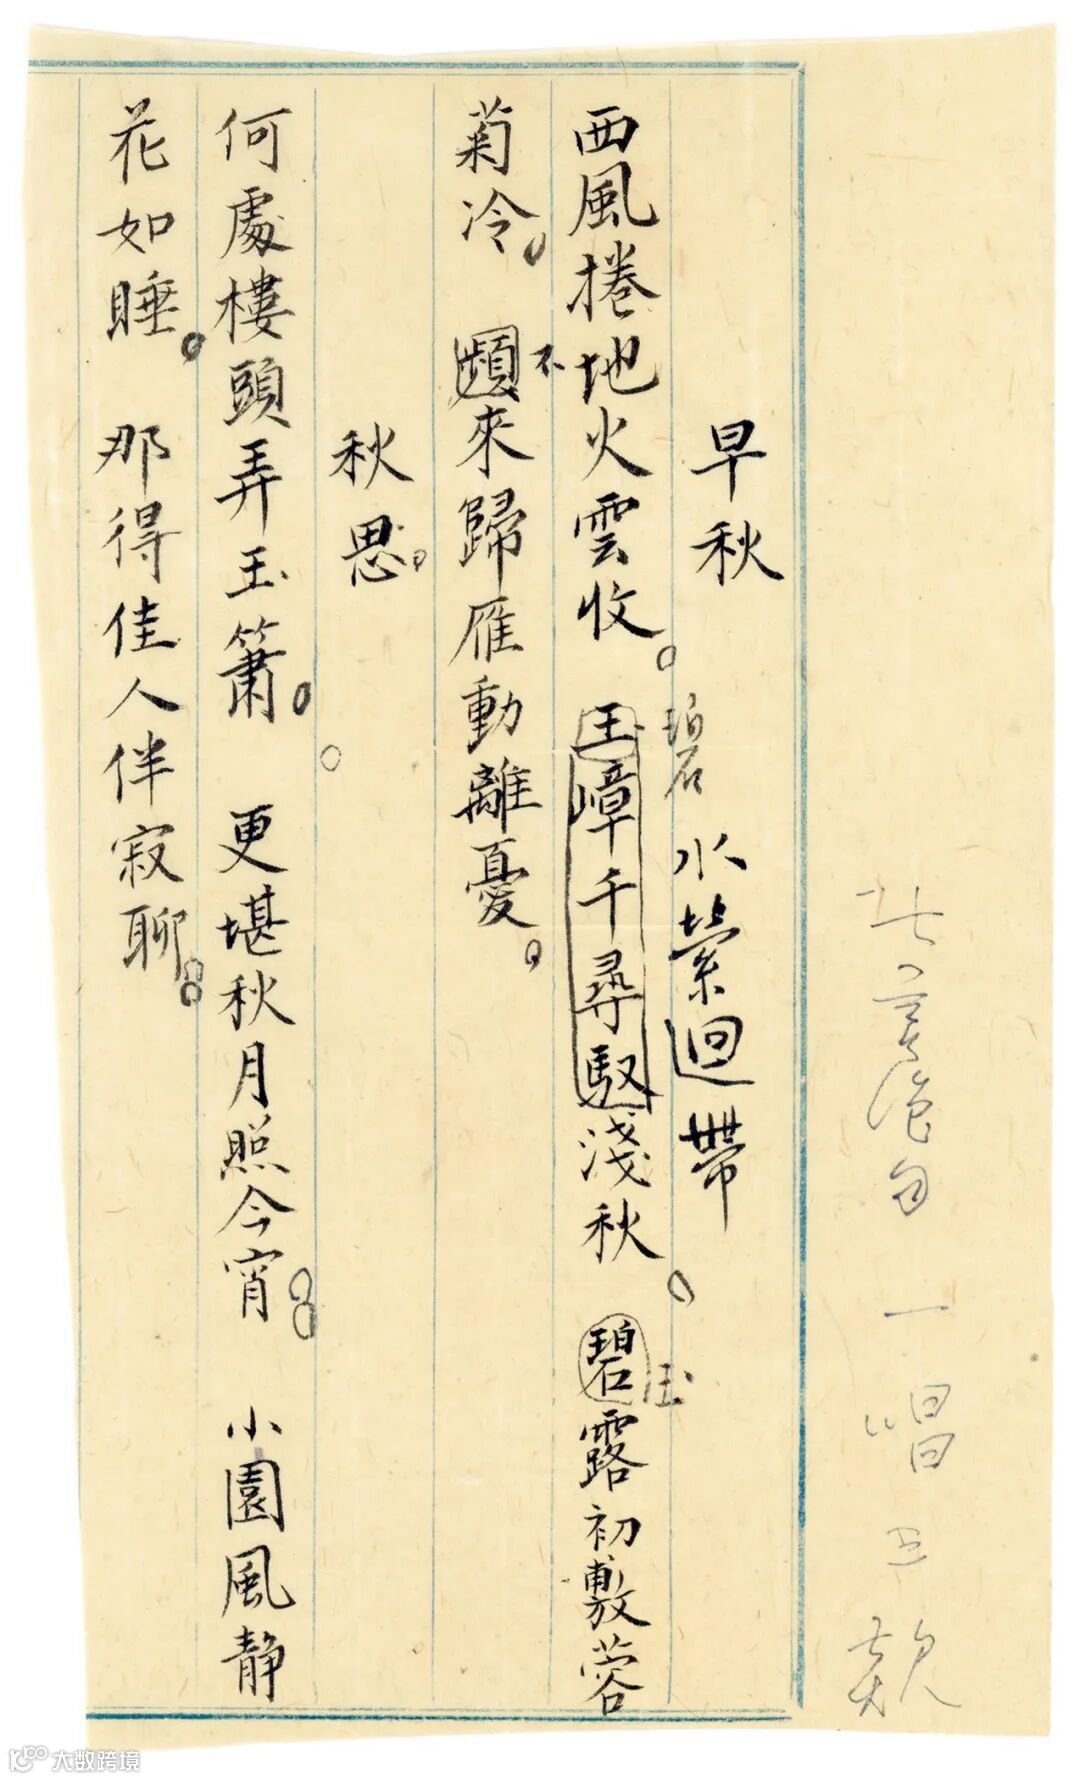 早秋
西風捲地火雲收。王嶂千尋馭淺秋。碧露初敷蓉
碧水縈迴帶
玉
菊冷。頻來歸雁動離憂。
不
秋思。
何處樓頭弄玉簫。更堪秋月照今宵。小園風靜
花如睡。那得佳人伴寂聊。
一唱三歎
大数跨境